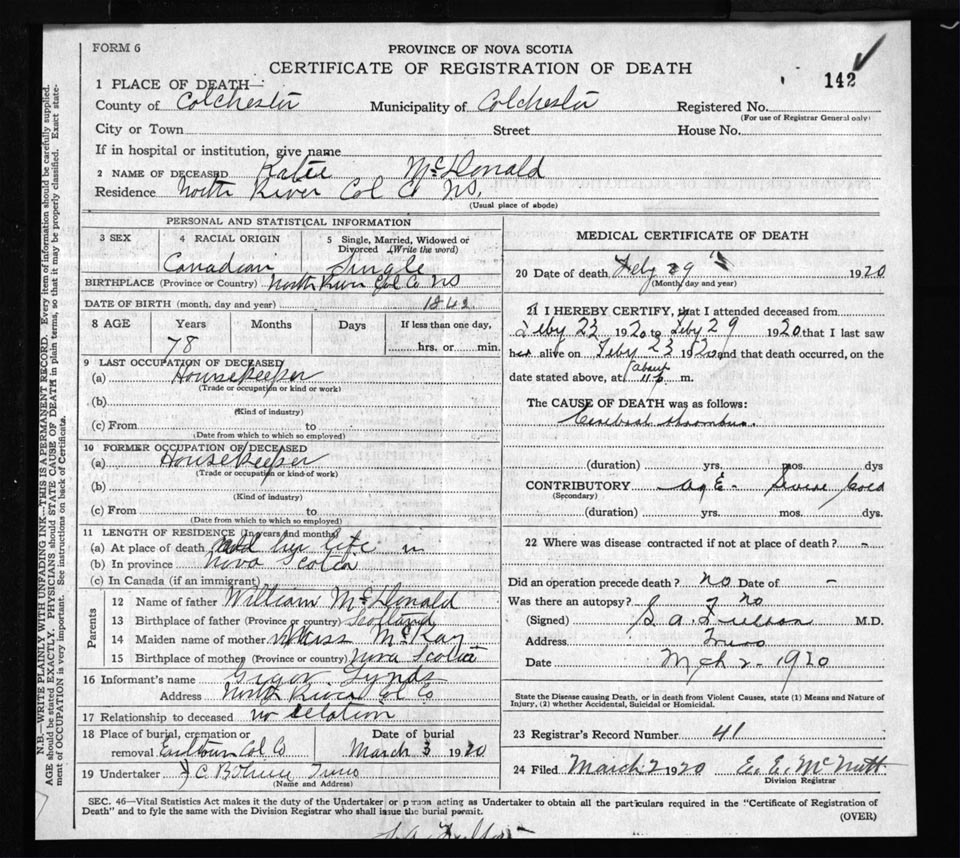 FORM 6
PROVINCE OF NOVA SCOTIA
CERTIFICATE OF REGISTRATION OF DEATH
142
1 PLACE OF DEATH—
County of Colchester Municipality of Colchester Registered No.
(For use of Registrar General only)
City or Town Street House No.
If in hospital or institution, give name
2 NAME OF DECEASED Katie McDonald
Residence North River Col Co NS.
(Usual place of abode)
PERSONAL AND STATISTICAL INFORMATION
3 SEX 4 RACIAL ORIGIN 5 Single, Married, Widowed or
Divorced (Write the word)
Canadian Single
BIRTHPLACE (Province or Country) North River Col Co NS
DATE OF BIRTH (month, day and year) 1842
8 AGE Years Months Days If less than one day,
78 hrs. or min.
9 LAST OCCUPATION OF DECEASED
(a) Housekeeper
(Trade or occupation or kind or work)
(b)
(Kind of industry)
(c) From to
(Date from which to which so employed)
10 FORMER OCCUPATION OF DECEASED
(a) Housekeeper
(Trade or occupation or kind of work)
(b)
(Kind of industry)
(c) From to
(Date from which to which so employed)
11 LENGTH OF RESIDENCE (In years and months)
(a) At place of death her life in
(b) In province Nova Scotia
(c) In Canada (if an immigrant)
Parents
12 Name of father William McDonald
13 Birthplace of father (Province or country) Scotland
14 Maiden name of mother Miss McKay
15 Birthplace of mother (Province or country) Nova Scotia
16 Informant's name Lynds
Address North River Col Co
17 Relationship to deceased no relation
18 Place of burial, cremation or Date of burial
removal Earltown Col Co March 3 1920
19 Undertaker Truro
(Name and Address)
MEDICAL CERTIFICATE OF DEATH
20 Date of death Feby 29 1920
(Month, day and year)
21 I HEREBY CERTIFY, that I attended deceased from
Feby 23 1920 to Feby 29 1920 that I last saw
her alive on Feby 23 1920 and that death occurred, on the
date stated above, at about 11 p m.
The CAUSE OF DEATH was as follows:
Cerebral thrombus.
(duration) yrs. mos. dys
CONTRIBUTORY Age - Severe Cold
(Secondary)
(duration) yrs. mos. dys.
22 Where was disease contracted if not at place of death? -
Did an operation precede death? no Date of -
Was there an autopsy? no
(Signed) S. A. Fulton M.D.
Address Truro
Date Mch 2 - 1920
State the Disease causing Death, or in death from Violent Causes, state (1) Means and Nature of
Injury, (2) whether Accidental, Suicidal or Homicidal.
23 Registrar's Record Number 41
24 Filed March 2 1920 E. E. McNutt
Division Registrar
SEC. 46—Vital Statistics Act makes it the duty of the Undertaker or person acting as Undertaker to obtain all the particulars required in the "Certificate of Registration of
Death" and to fyle the same with the Division Registrar who shall issue the burial permit.
(OVER)
S. A. Fulton
N.B.—WRITE PLAINLY WITH UNFADING INK—THIS IS A PERMANENT RECORD. Every item of information should be carefully supplied.
AGE should be stated EXACTLY. PHYSICIANS should STATE CAUSE OF DEATH in plain terms, so that it may be properly classified. Exact state-
ment of OCCUPATION is very important. See instructions on back of Certificate.